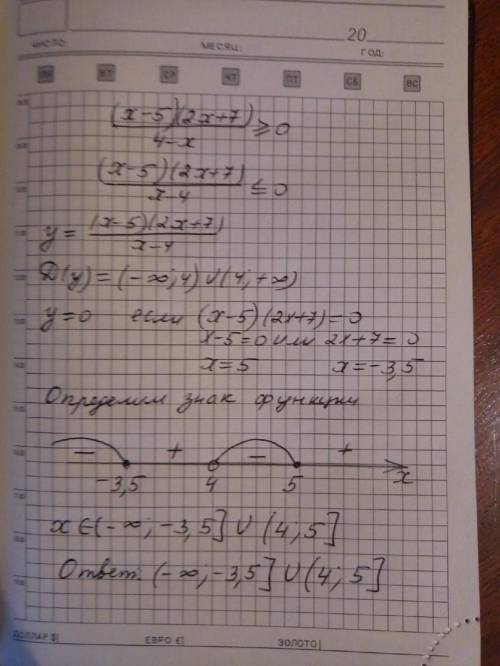 20
ЧИСЛО: МЕСЯЦ: ГОД:
ПН ВТ СР ЧТ ПТ СБ ВС
(x-5)(2x+7)/4-x ≥ 0
(x-5)(2x+7)/x-4 ≤ 0
y = (x-5)(2x+7)/x-4
D(y) = (-∞; 4) ∪ (4; +∞)
y=0 если (x-5)(2x+7)=0
x-5=0 или 2x+7=0
x=5 x=-3,5
Определим знак функции
- + - +
-3,5 4 5 x
x ∈ (-∞; -3,5] ∪ (4; 5]
Ответ: (-∞; -3,5] ∪ (4; 5]
ДОЛЛАР $| ЕВРО €| ЗОЛОТО|